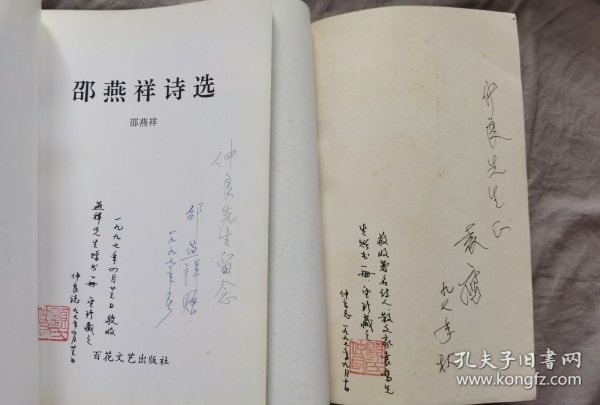 邵燕祥诗选
邵燕祥
仲良先生留念
邵燕祥赠
一九九七年
一九九七年四月廿三日敬收
燕祥先生赠书一册望珍藏之
仲良志
百花文艺出版社
仲良先生正
袁鹰
九七年秋
敬收著名诗人散文家袁鹰先
生赠书一册望珍藏之
仲良志一九九七年九月
孔夫子旧书网
www.kongfz.com